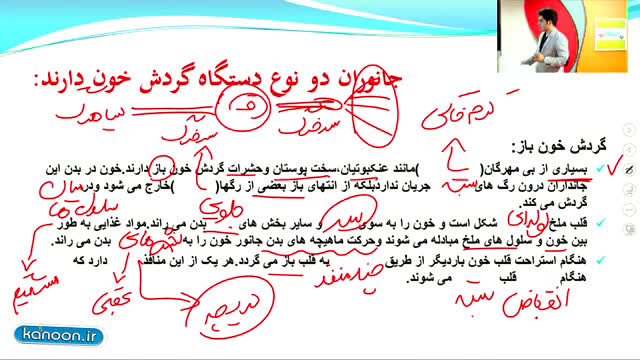 جانوران دو نوع دستگاه گردش خون دارند:
سیاهرگ
سرخرگ
سرخرگ
کرم خاکی
گردش خون باز:
بسیاری از بی مهرگان( )مانند عنکبوتیان،سخت پوستان وحشرات گردش خون باز دارند.خون در بدن این
جانداران درون رگ های بسته جریان نداردبلکه از انتهای باز بعضی از رگها( )خارج می شود ودر میان سلول ها
گردش می کند.
قلب ملخ لوله ای شکل است و خون را به سوی سر و سایر بخش های بدن می راند.مواد غذایی به طور مستقیم
بین خون و سلول های ملخ مبادله می شوند وحرکت ماهیچه های بدن جانور خون را به بخش های عقبی بدن می راند.
هنگام استراحت قلب خون باردیگر از طریق چند منفذ به قلب باز می گردد.هر یک از این منافذ دریچه دارد که
هنگام انقباض قلب بسته می شوند.
kanoon.ir